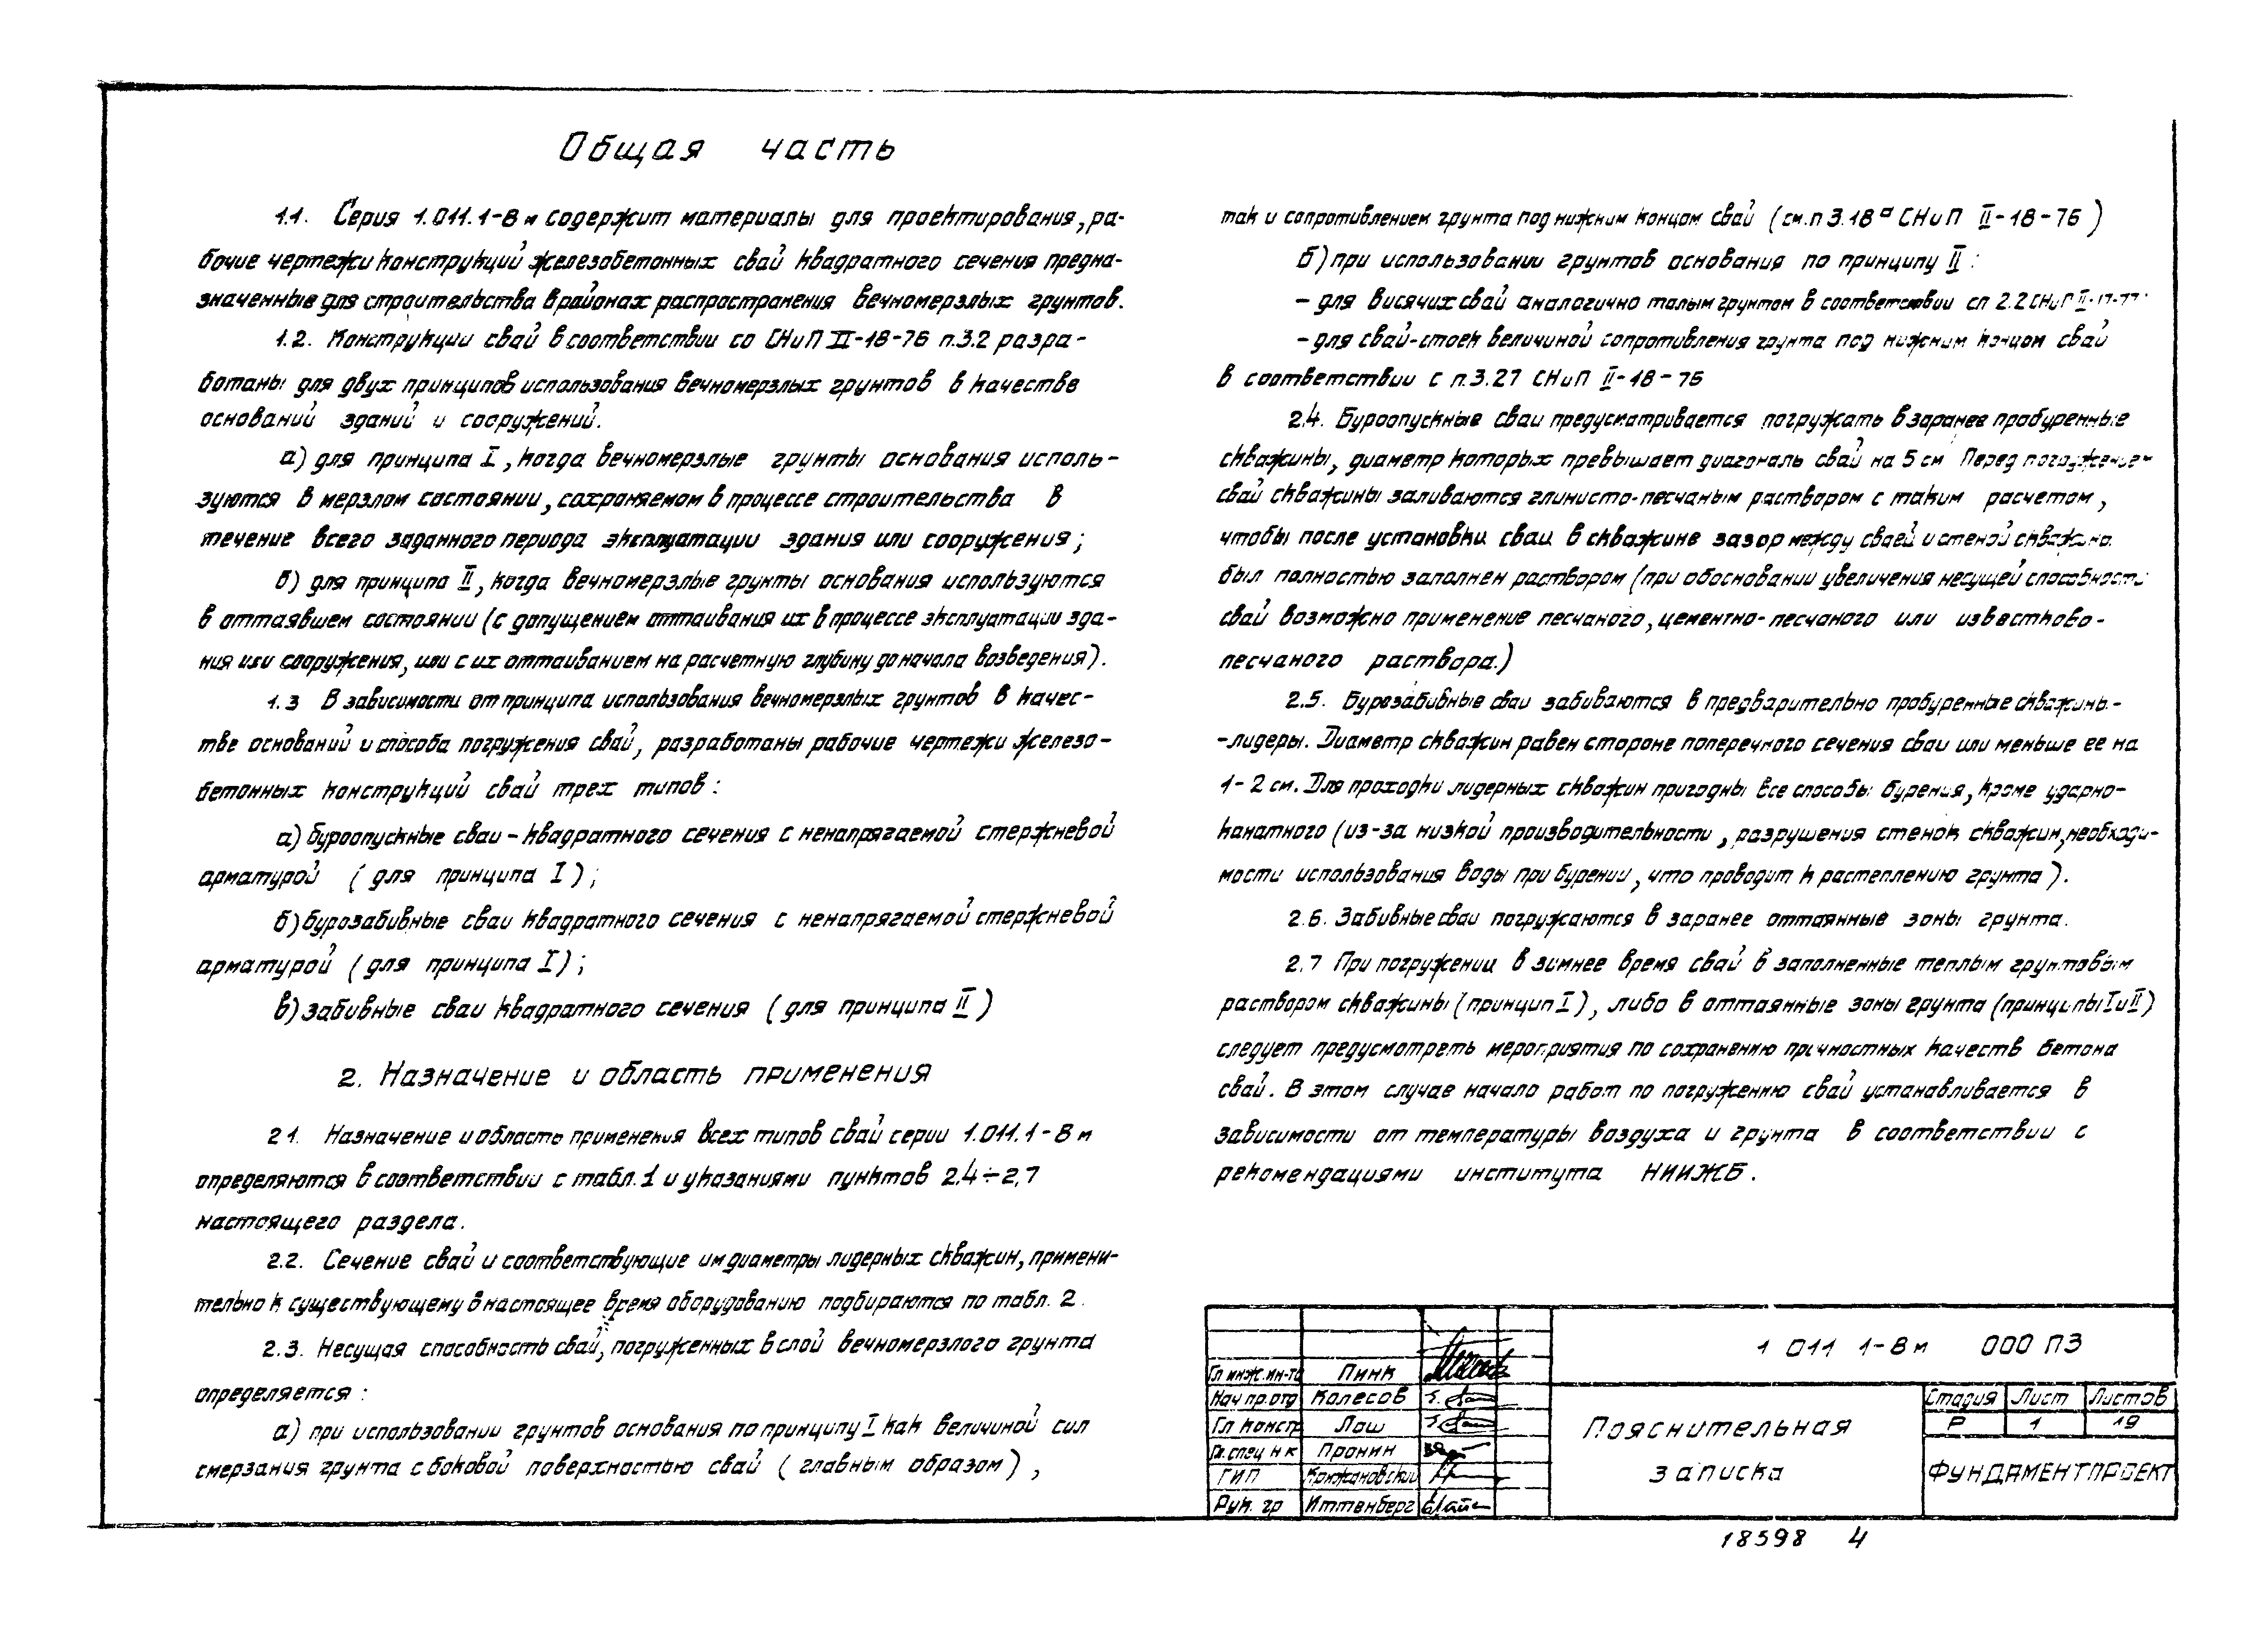 Общая часть
1.1. Серия 1.011.1-8м содержит материалы для проектирования, ра-
бочие чертежи конструкций железобетонных свай квадратного сечения предна-
значенные для строительства в районах распространения вечномерзлых грунтов.
1.2. Конструкции свай в соответствии со СНиП II-18-76 п.3.2 разра-
ботаны для двух принципов использования вечномерзлых грунтов в качестве
оснований зданий и сооружений.
а) для принципа I, когда вечномерзлые грунты основания исполь-
зуются в мерзлом состоянии, сохраняемом в процессе строительства в
течение всего заданного периода эксплуатации здания или сооружения;
б) для принципа II, когда вечномерзлые грунты основания используются
в оттаявшем состоянии (с допущением оттаивания их в процессе эксплуатации зда-
ния или сооружения, или с их оттаиванием на расчетную глубину до начала возведения).
1.3 В зависимости от принципа использования вечномерзлых грунтов в качес-
тве оснований и способа погружения свай, разработаны рабочие чертежи железо-
бетонных конструкций свай трех типов:
а) буроопускные сваи - квадратного сечения с ненапрягаемой стержневой
арматурой (для принципа I);
б) бурозабивные сваи квадратного сечения с ненапрягаемой стержневой
арматурой (для принципа I);
в) забивные сваи квадратного сечения (для принципа II)
2. Назначение и область применения
2 1. Назначение и область применения всех типов свай серии 1.011.1-8м
определяются в соответствии с табл.1 и указаниями пунктов 2.4÷2.7
настоящего раздела.
2.2. Сечение свай и соответствующие им диаметры лидерных скважин, примени-
тельно к существующему в настоящее время оборудованию подбираются по табл. 2.
2.3. Несущая способность свай, погруженных в слой вечномерзлого грунта
определяется:
а) при использовании грунтов основания по принципу I как величиной сил
смерзания грунта с боковой поверхностью свай (главным образом),
так и сопротивлением грунта под нижним концом свай (см.п 3.18ª СНиП II-18-76)
б) при использовании грунтов основания по принципу II:
- для висячих свай аналогично талым грунтом в соответствии с п 2.2 СНиП II-17-77
- для свай-стоек величиной сопротивления грунта под нижним концом свай
в соответствии с п.3.27 СНиП II-18-76
2.4. Буроопускные сваи предусматривается погружать в заранее пробуренные
скважины, диаметр которых превышает диагональ свай на 5 см Перед погружением
свай скважины заливаются глинисто-песчаным раствором с таким расчетом,
чтобы после установки сваи в скважине зазор между сваей и стеной скважины
был полностью заполнен раствором (при обосновании увеличения несущей способности
свай возможно применение песчаного, цементно-песчаного или известково-
песчаного раствора.)
2.5. Бурозабивные сваи забиваются в предварительно пробуренные скважины-
-лидеры. Диаметр скважин равен стороне поперечного сечения сваи или меньше ее на
1-2 см. Для проходки лидерных скважин пригодны все способы бурения, кроме ударно-
канатного (из-за низкой производительности, разрушения стенок скважин, необходи-
мости использования воды при бурении, что проводит к растеплению грунта).
2.6. Забивные сваи погружаются в заранее оттаянные зоны грунта.
2.7 При погружении в зимнее время свай в заполненные теплым грунтовым
раствором скважины (принцип I), либо в оттаянные зоны грунта (принципы I и II)
следует предусмотреть мероприятия по сохранению прочностных качеств бетона
свай. В этом случае начало работ по погружению свай устанавливается в
зависимости от температуры воздуха и грунта в соответствии с
рекомендациями института НИИЖБ.
1 011 1-8м 000 ПЗ
Гл инж.ин-та Пинк
Нач пр.отд Колесов
Гл констр Лаш
Гл.спец НК Пронин
ГИП Крижановский
Рук. гр Иттенберг
Пояснительная
записка
Стадия Лист Листов
Р 1 19
ФУНДАМЕНТПРОЕКТ
18598 4